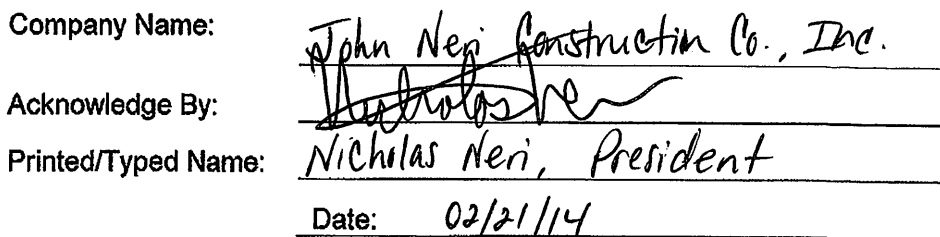 Company Name: John Neri Construction Co., Inc.
Acknowledge By: Nicholas Neri
Printed/Typed Name: Nicholas Neri, President
Date: 02/21/14